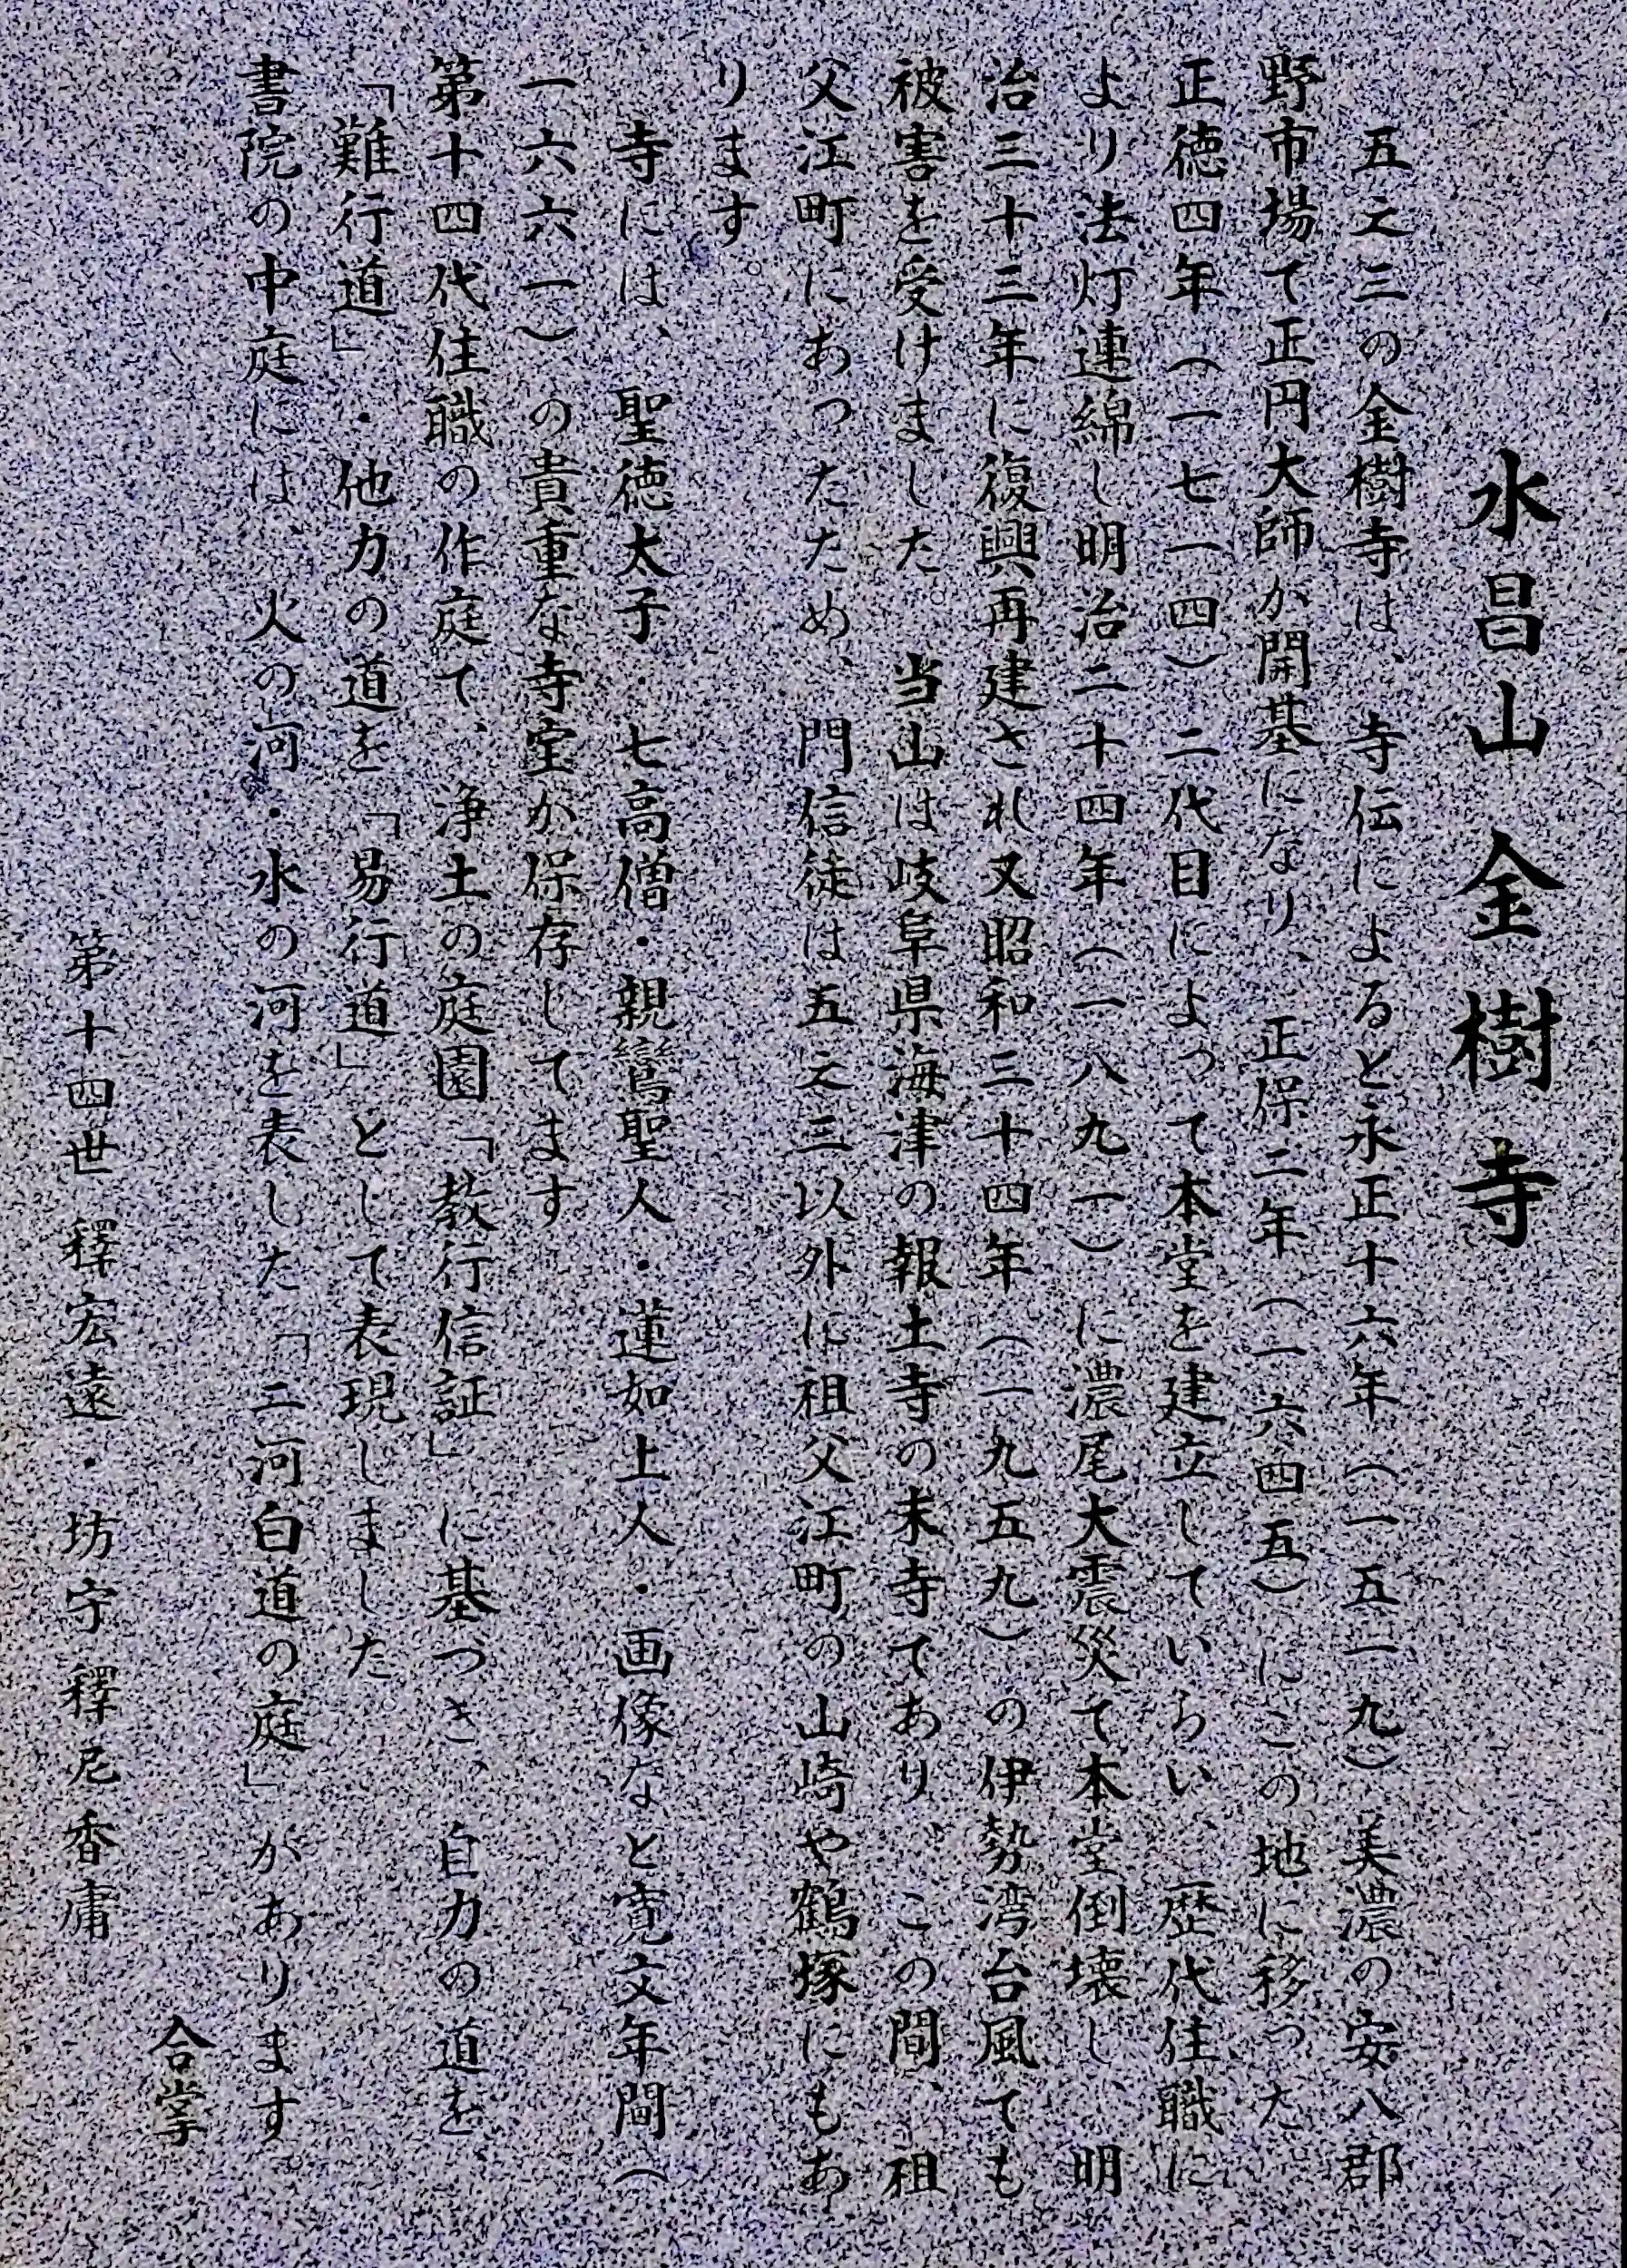 水昌山 金樹寺
五之三の金樹寺は、寺伝によると永正十六年(一五一九)美濃の安八郡
野市場で正円大師が開基になり、正保二年(一六四五)にこの地に移った。
正徳四年(一七一四)二代目によって本堂を建立していらい、歴代住職に
より法灯連綿し明治二十四年(一八九一)に濃尾大震災で本堂倒壊し、明
治三十三年に復興再建され又昭和三十四年(一九五九)の伊勢湾台風でも
被害を受けました。当山は岐阜県海津の報土寺の末寺であり、この間、祖
父江町にあったため、門信徒は五之三以外に祖父江町の山崎や鶴塚にもあ
ります。
寺には、聖徳太子・七高僧・親鸞聖人・蓮如上人・画像など寛文年間(
一六六一)の貴重な寺宝が保存してます
第十四代住職の作庭で、浄土の庭園「教行信証」に基づき、自力の道を、
「難行道」・他力の道を「易行道」として表現しました。
書院の中庭には、火の河・水の河を表した「二河白道の庭」があります。
合掌
第十四世 釋宏遠・坊守 釋尼香庸